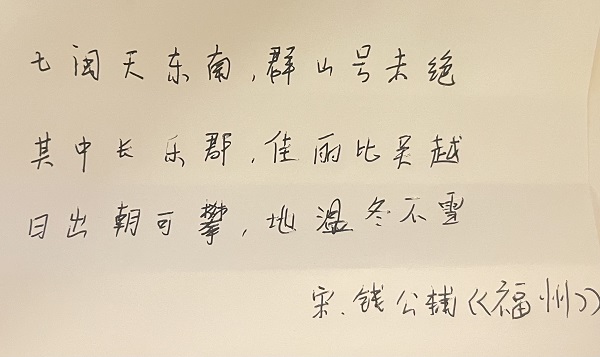 七闽天东南,群山号未绝
其中长乐郡,佳丽比吴越
日出朝可攀,地温冬不雪
宋.钱公辅《福州》